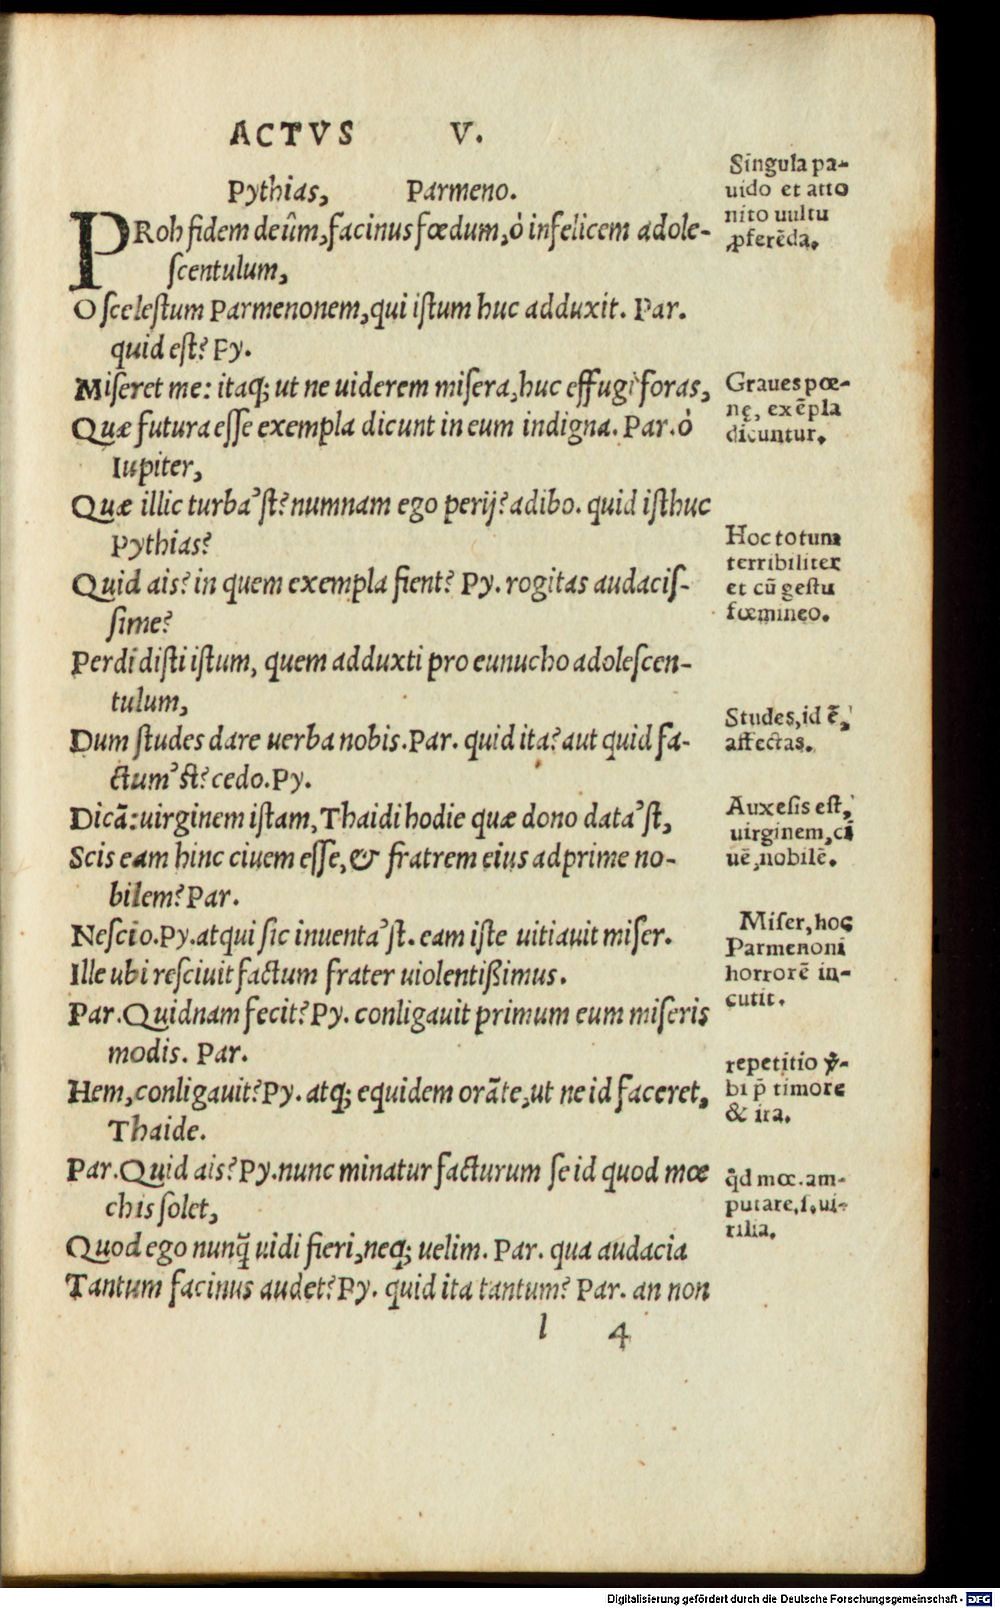 ACTVS V.
Pythias, Parmeno.
PRoh fidem deûm, facinus fœdum, ò infelicem adole-
scentulum,
O scelestum Parmenonem, qui istum huc adduxit. Par.
quid est? Py.
Miseret me: itaq; ut ne uiderem misera, huc effugi foras,
Quæ futura esse exempla dicunt in eum indigna. Par. ò
Iupiter,
Quæ illic turba'st? numnam ego perij? adibo. quid isthuc
Pythias?
Quid ais? in quem exempla fient? Py. rogitas audacis-
sime?
Perdidisti istum, quem adduxti pro eunucho adolescen-
tulum,
Dum studes dare uerba nobis. Par. quid ita? aut quid fa-
ctum'st? cedo. Py.
Dicā: uirginem istam, Thaidi hodie quæ dono data'st,
Scis eam hinc ciuem esse, & fratrem eius adprime no-
bilem? Par.
Nescio. Py. atqui sic inuenta'st. eam iste uitiauit miser.
Ille ubi resciuit factum frater uiolentißimus.
Par. Quidnam fecit? Py. conligauit primum eum miseris
modis. Par.
Hem, conligauit? Py. atq; equidem orāte, ut ne id faceret,
Thaide.
Par. Quid ais? Py. nunc minatur facturum se id quod mœ
chis solet,
Quod ego nunq̃ uidi fieri, neq; uelim. Par. qua audacia
Tantum facinus audet? Py. quid ita tantum? Par. an non
l 4
Singula pa-
uido et atto
nito uultu
ꝓferēda.
Graues pœ-
nę, exēpla
dicuntur.
Hoc totum
terribiliter
et cū gestu
fœmineo.
Studes, id ē,
affectas.
Auxesis est,
uirginem, ci
uē, nobilē.
Miser, hoc
Parmenoni
horrorē in-
cutit.
repetitio ꝟ-
bi p̄ timore
& ira.
q̈d mœ. am-
putare, s. ui-
rilia.
Digitalisierung gefördert durch die Deutsche Forschungsgemeinschaft - DFG